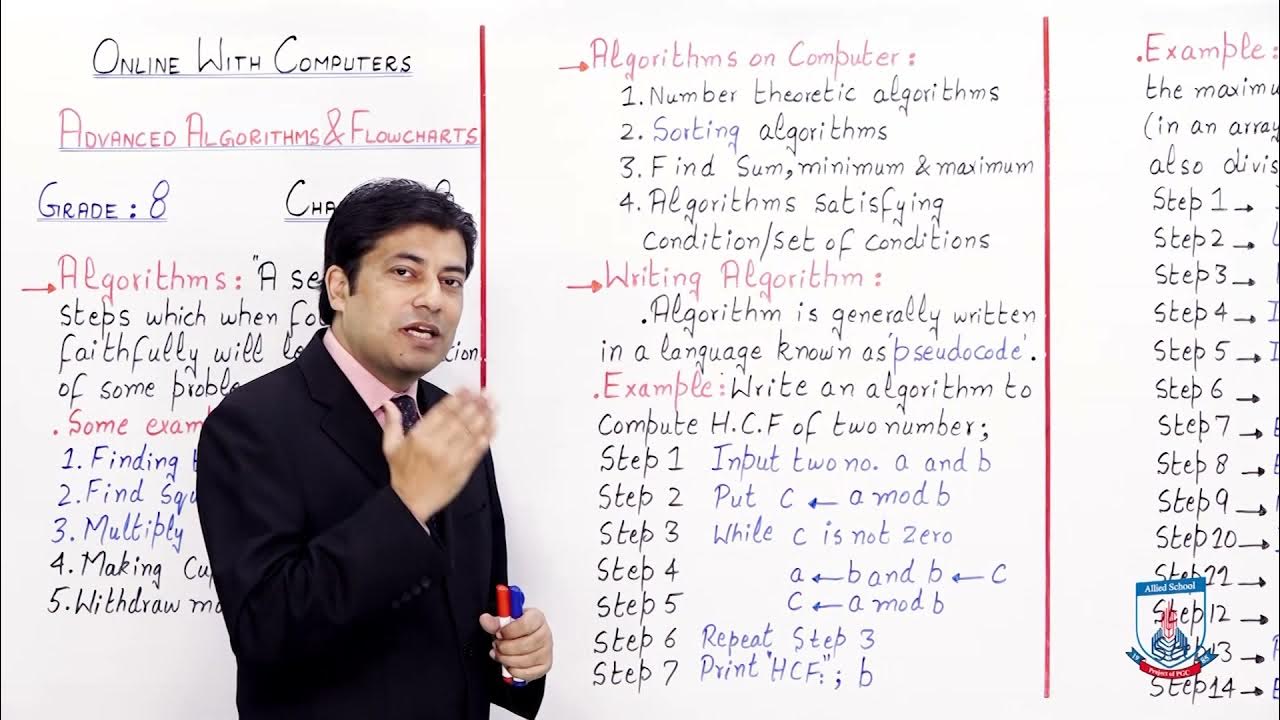 ONLINE WITH COMPUTERS
ADVANCED ALGORITHMS & FLOWCHARTS
GRADE: 8
Algorithms: "A se
steps which when fo
faithfully will
of some proble
.Some exam
1. Finding
2. Find Squ
3. Multiply
4. Making Cu
5. Withdraw mo
Algorithms on Computer:
1. Number theoretic algorithms
2. Sorting algorithms
3. Find Sum, minimum & maximum
4. Algorithms satisfying
condition/set of conditions
Writing Algorithm:
.Algorithm is generally written
in a language known as 'pseudocode'.
.Example: Write an algorithm to
Compute H.C.F of two number;
Step 1 Input two no. a and b
Step 2 Put C ← a mod b
Step 3 While C is not Zero
Step 4 a ← b and b ← C
Step 5 C ← a mod b
Step 6 Repeat Step 3
Step 7 Print "HCF:" ; b
.Example:
the maximu
(in an array
also divis
Step 1 →
Step 2 →
Step 3 →
Step 4 →
Step 5 →
Step 6 →
Step 7 →
Step 8 →
Step 9 →
Step 10 →
Step 11 →
Step 12 →
Step 13 →
Step 14 →
Allied School
Project of PGC